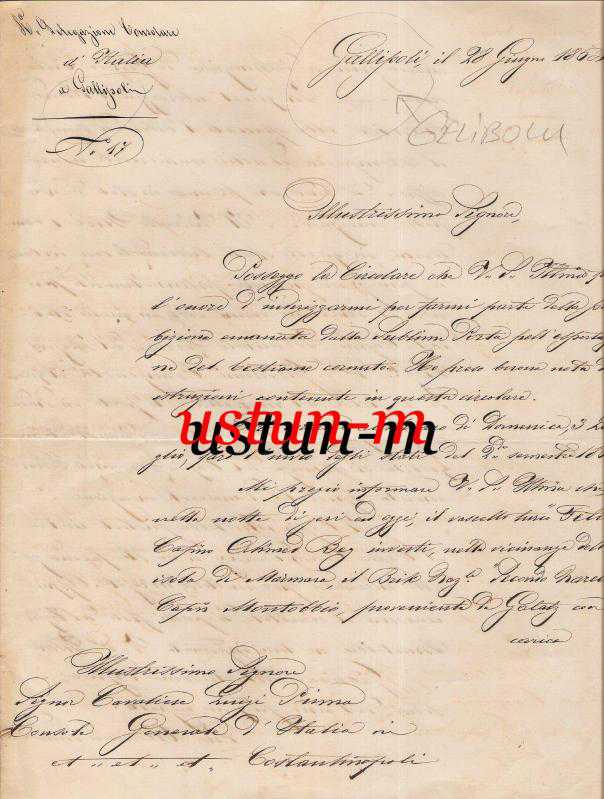 Rª Delegazione Consolare
d'Italia
a Gallipoli
Nº 47
Gallipoli, il 28 Giugno 186
GELIBOLU
Illustrissimo Signore,
Posseggo la Circolare che V. S. Ill.ma
l'onore d'indirizzarmi per farmi parte della
bizione emanata dalla Sublime Porta pell'esporta
ne del bestiame cornuto. Ho preso buona nota
istruzioni contenute in questa circolare.
ustum-m
di Domenica, 3
glio, degli stati del 2do semestre 186
Mi pregio informare V. S. Ill.ma che
nella notte di jeri ad oggi, il vascello turco
Capino Ahmed Bey investì, nelle vicinanze dell'
isola di Marmara, il Brik Naz.le
Cap.no Montobbio, proveniente da Galatz con
carico
Illustrissimo Signore
Signor Cavaliere Luigi Pinna
Console Generale d'Italia in
et et et Costantinopoli